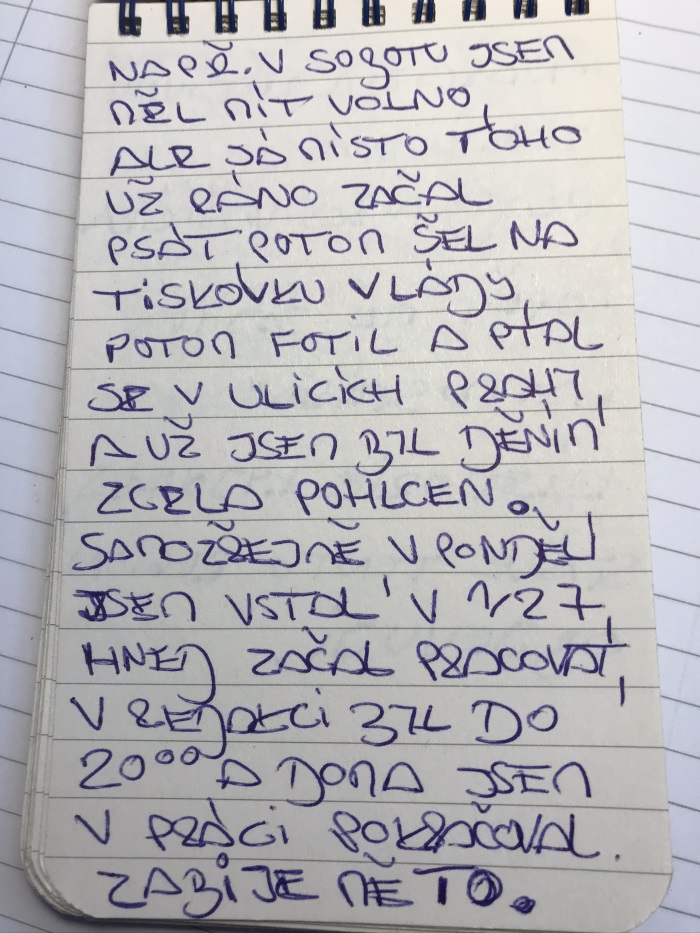 NAPŘ. V SOBOTU JSEM
MĚL MÍT VOLNO,
ALE JÁ MÍSTO TOHO
UŽ RÁNO ZAČAL
PSÁT, POTOM ŠEL NA
TISKOVKU VLÁDY,
POTOM FOTIL A PTAL
SE V ULICÍCH PRAHY,
A UŽ JSEM BYL DĚNÍM
ZCELA POHLCEN.
SAMOZŘEJMĚ V PONDĚLÍ
JSEM VSTAL V 1/2 7,
HNED ZAČAL PRACOVAT,
V REDAKCI BYL DO
20⁰⁰ A DOMA JSEM
V PRÁCI POKRAČOVAL.
ZABIJE MĚ TO.